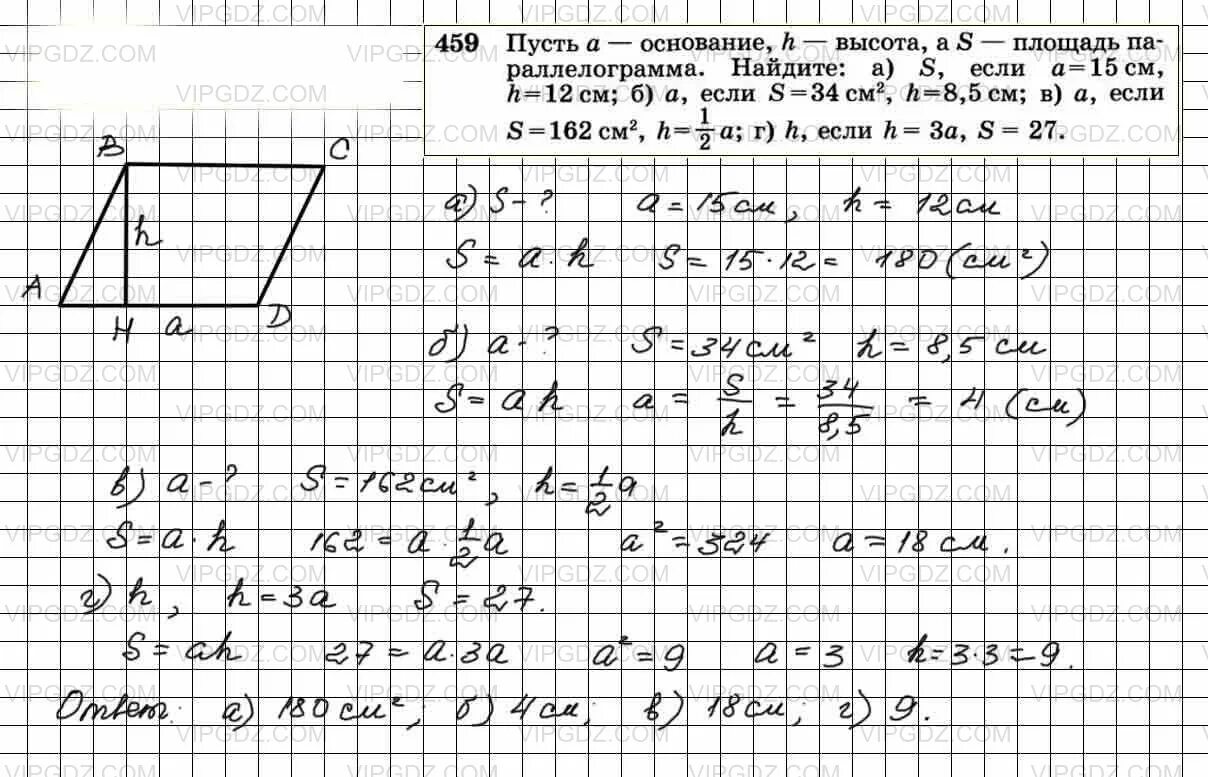 459 Пусть a — основание, h — высота, а S — площадь па-
раллелограмма. Найдите: а) S, если a=15 см,
h=12 см; б) a, если S=34 см², h=8,5 см; в) a, если
S=162 см², h=1/2 a; г) h, если h= 3a, S = 27.
B C
h
A H a D
а) S-? a = 15 см, h = 12 см
S = a·h S = 15·12 = 180 (см²)
б) a-? S = 34 см² h = 8,5 см
S = a h a = S/h = 34/8,5 = 4 (см)
в) a-? S = 162 см², h = 1/2 a
S = a·h 162 = a·1/2 a a² = 324 a = 18 см.
г) h, h = 3a S = 27.
S = ah 27 = a·3a a² = 9 a = 3 h = 3·3 = 9.
Ответ: а) 180 см²; б) 4 см; в) 18 см; г) 9.
VIPGDZ.COM